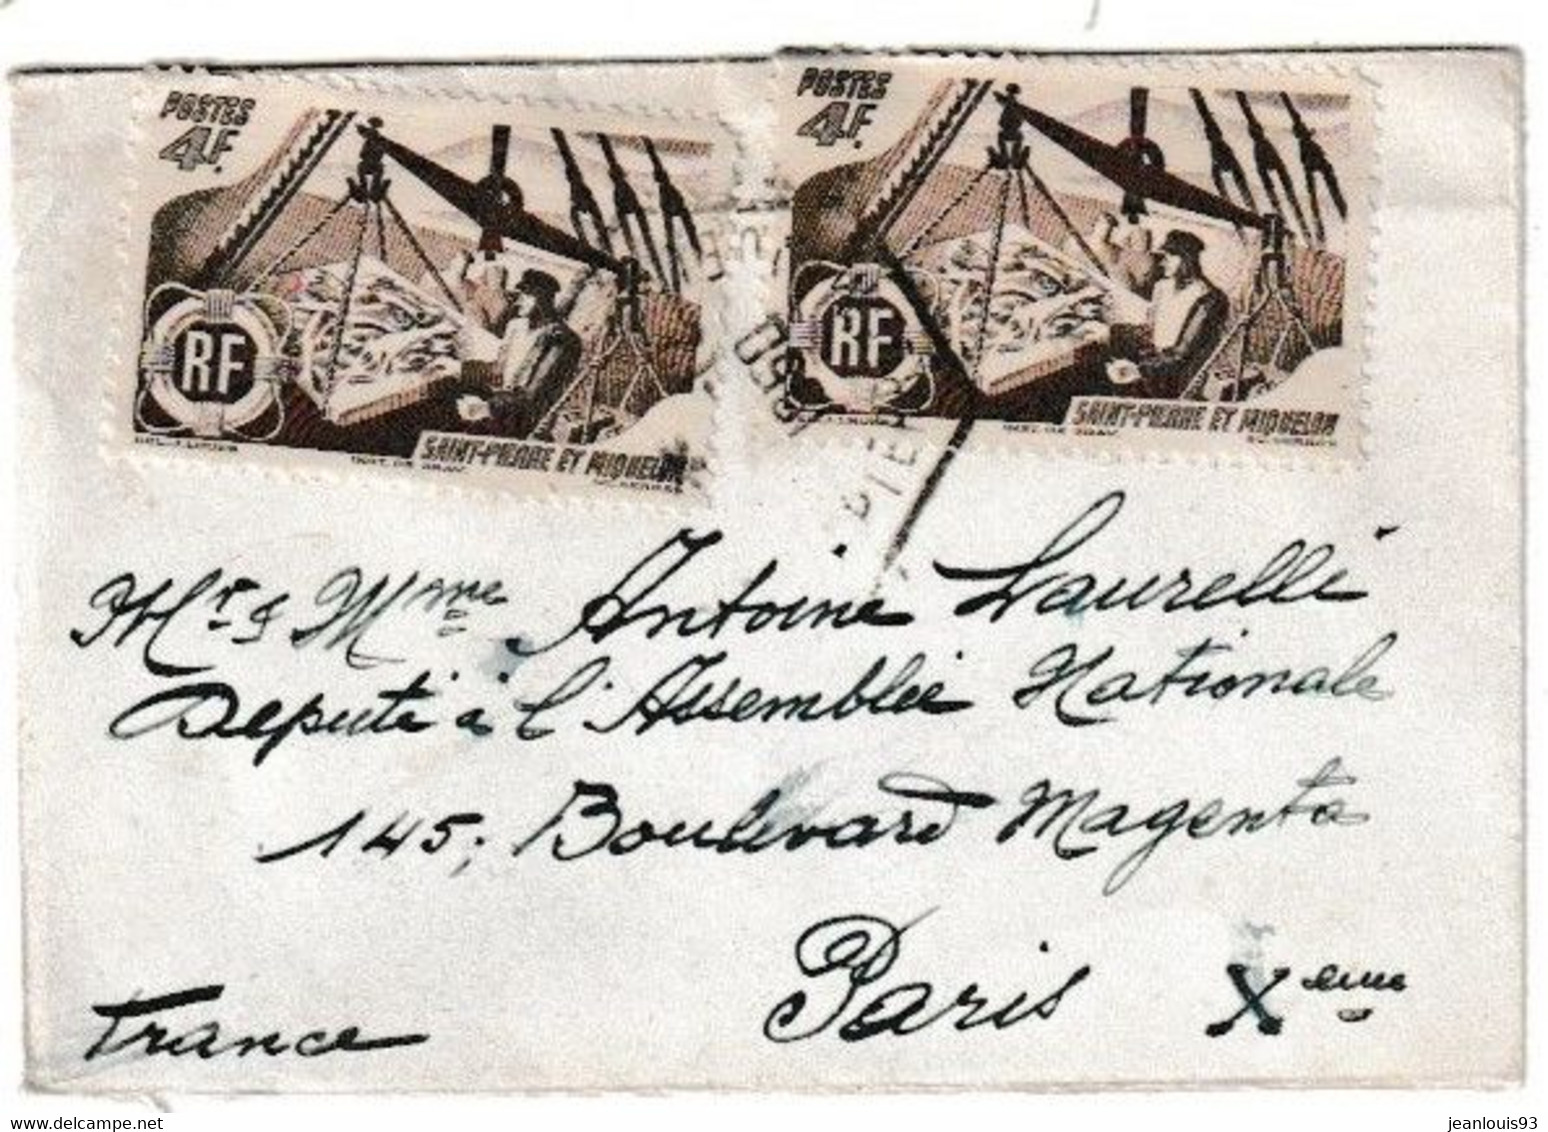 POSTES
4F.
RF
SAINT-PIERRE ET MIQUELON
POSTES
4F.
RF
SAINT-PIERRE ET MIQUELON
Mr & Mme Antoine Laurelli
Député à l'Assemblée Nationale
145, Boulevard Magenta
Paris Xeme
France
jeanlouis93